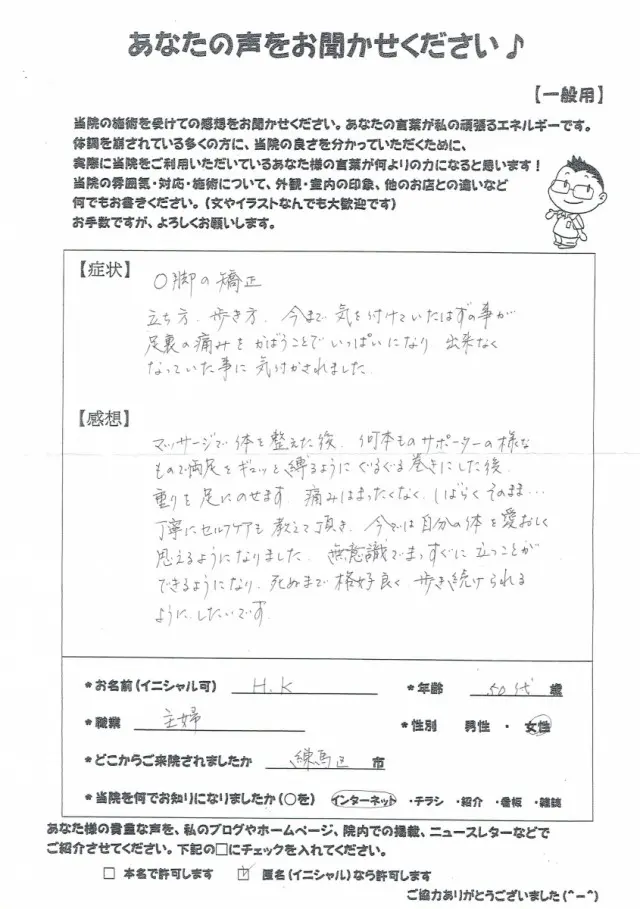 あなたの声をお聞かせください♪
【一般用】
当院の施術を受けての感想をお聞かせください。あなたの言葉が私の頑張るエネルギーです。
体調を崩されている多くの方に、当院の良さを分かっていただくために、
実際に当院をご利用いただいているあなた様の言葉が何よりの力になると思います！
当院の雰囲気・対応・施術について、外観・室内の印象、他のお店との違いなど
何でもお書きください。（文やイラストなんでも大歓迎です）
お手数ですが、よろしくお願いします。
【症状】
O脚の矯正
立ち方、歩き方、今まで気を付けていたはずの事が
足裏の痛みをかばうことでいっぱいになり 出来なく
なっていた事に気付かされました
【感想】
マッサージで体を整えた後、何本ものサポーターの様な
もので両足をギュッと縛るようにぐるぐる巻きにした後、
重りを足にのせます 痛みはまったくなく、しばらくそのまま…
丁寧にセルフケアも教えて頂き、今では自分の体を愛おしく
思えるようになりました。無意識でまっすぐに立つことが
できるようになり、死ぬまで格好良く歩き続けられる
ようにしたいです
*お名前（イニシャル可） H.K *年齢 50代 歳
*職業 主婦 *性別 男性 ・ 女性
*どこからご来院されましたか 練馬区 市
*当院を何でお知りになりましたか（○を） インターネット ・チラシ ・紹介 ・看板 ・雑誌
あなた様の貴重な声を、私のブログやホームページ、院内での掲載、ニュースレターなどで
ご紹介させてください。下記の□にチェックを入れてください。
□ 本名で許可します ☑ 匿名（イニシャル）なら許可します
ご協力ありがとうございました（^－^）